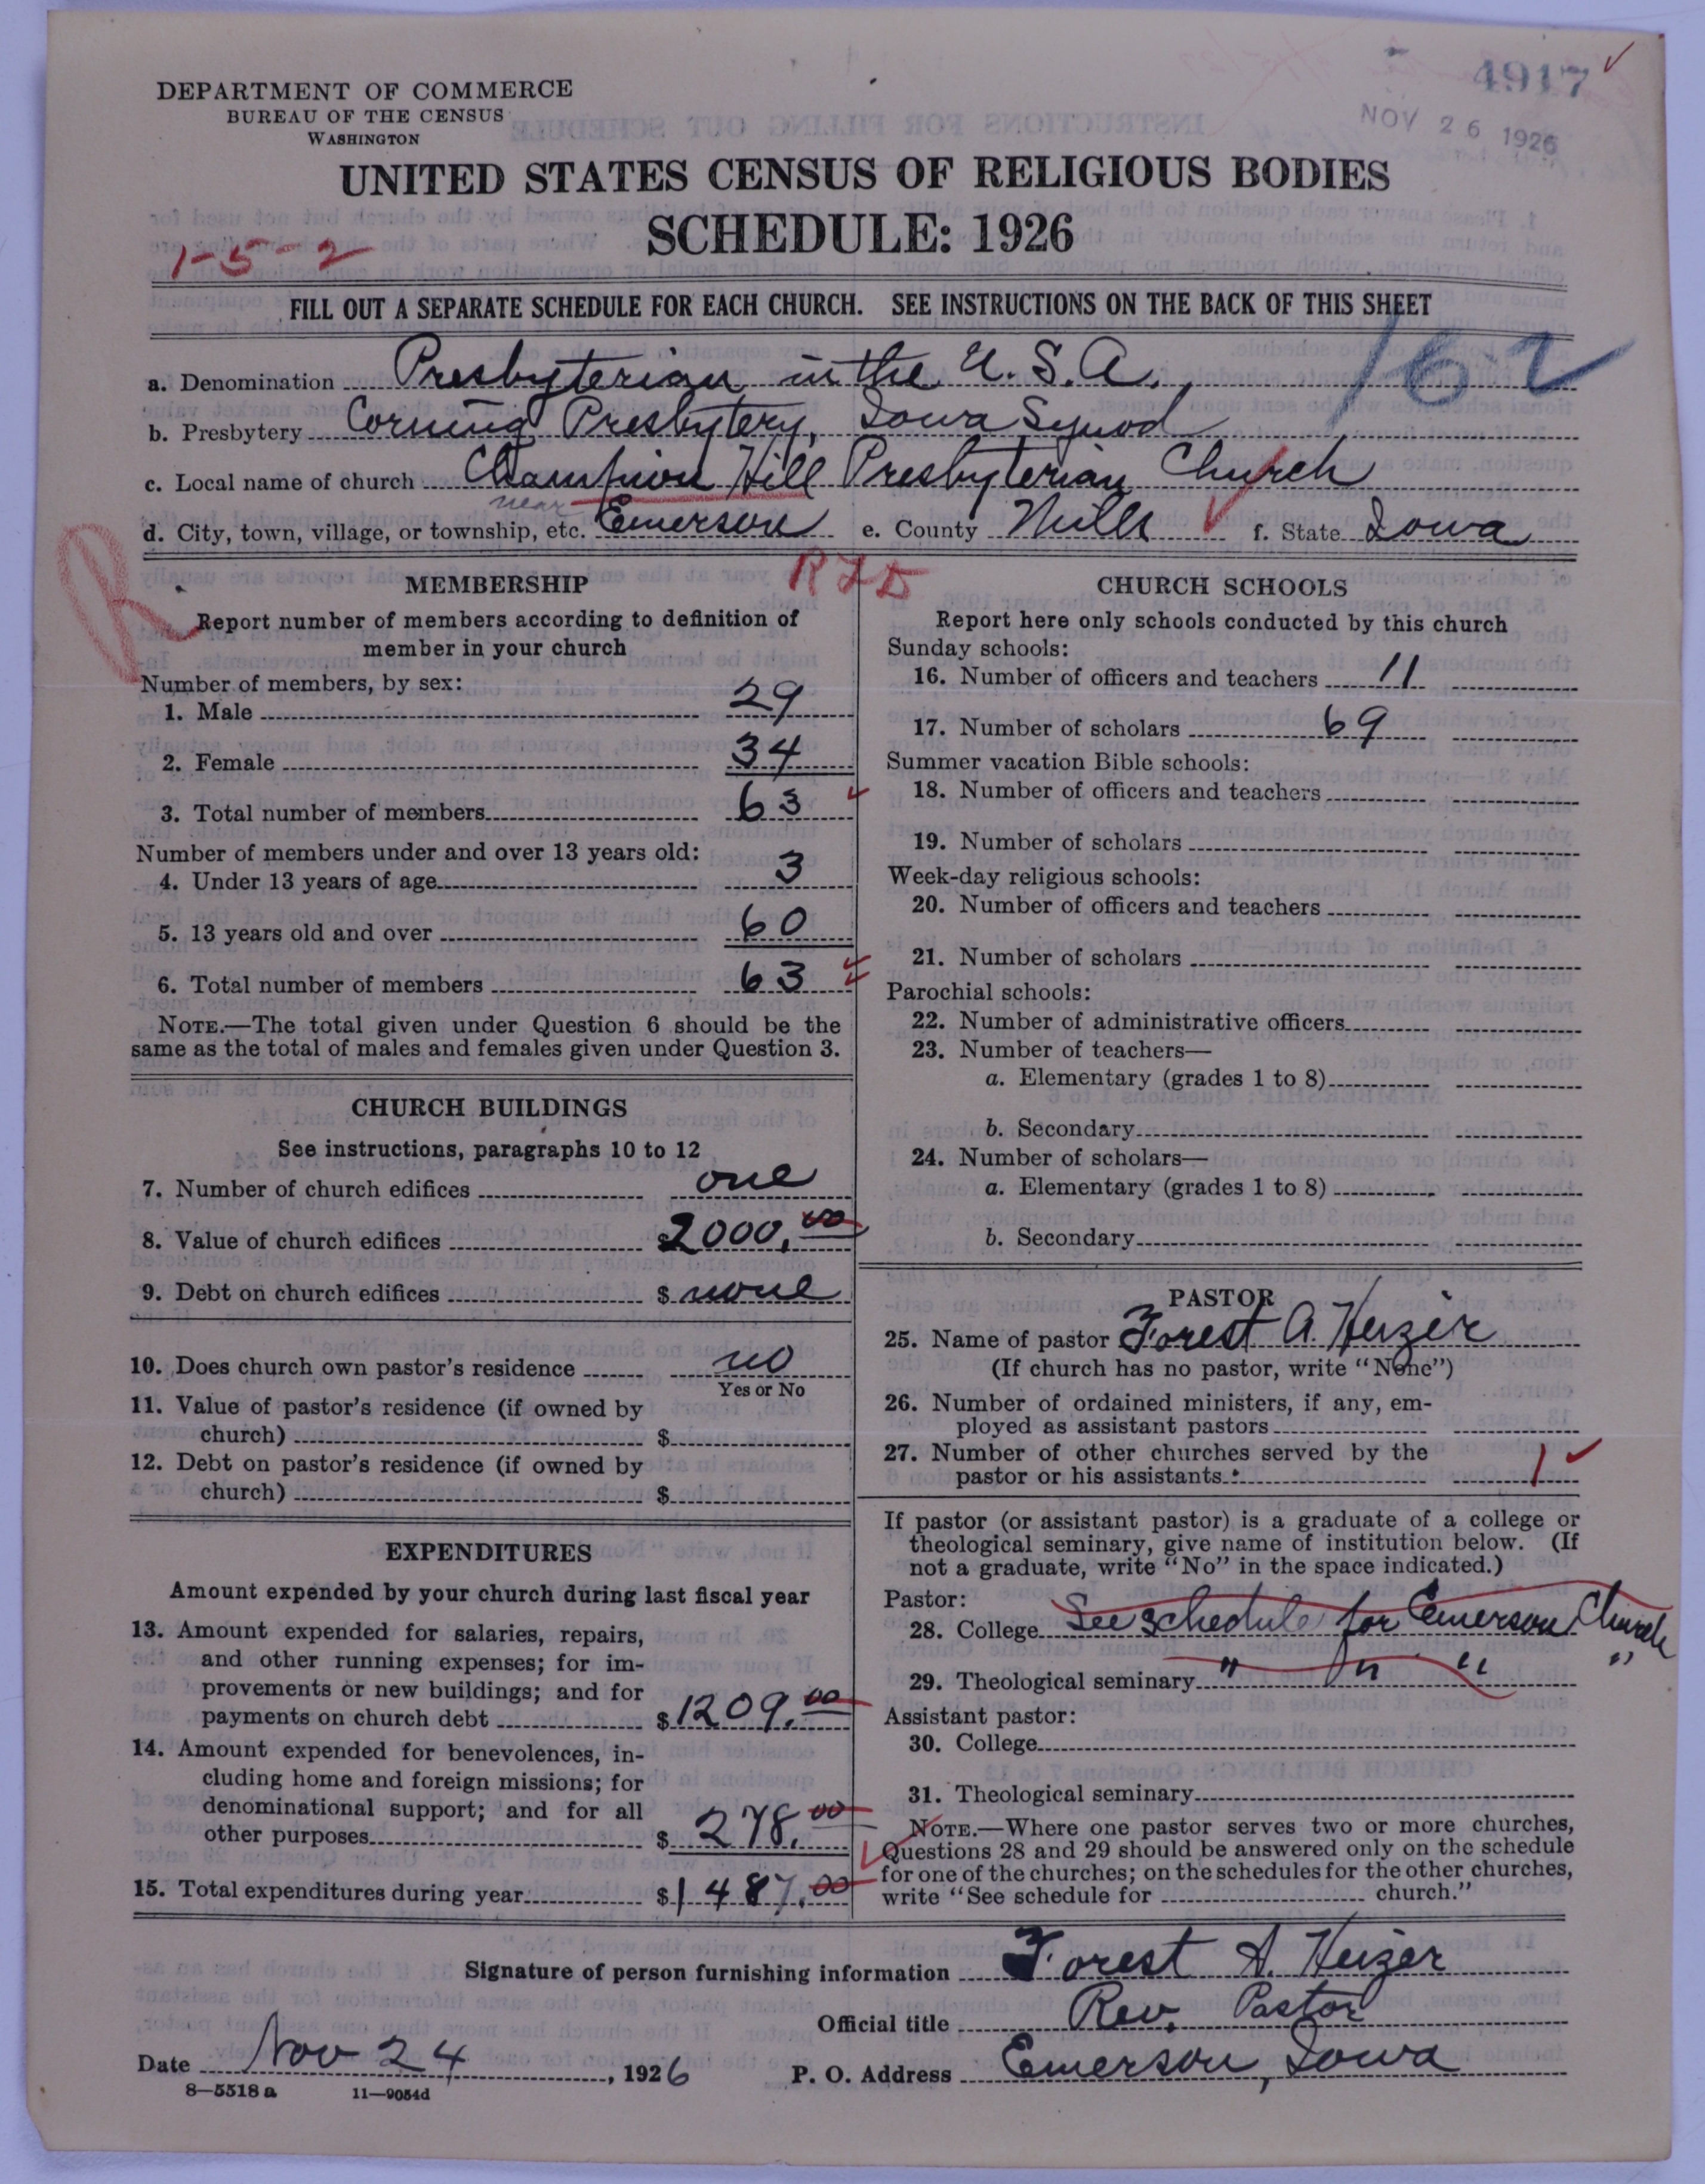 4917
NOV 26 1926
DEPARTMENT OF COMMERCE
BUREAU OF THE CENSUS
WASHINGTON
UNITED STATES CENSUS OF RELIGIOUS BODIES
SCHEDULE: 1926
1-5-2
FILL OUT A SEPARATE SCHEDULE FOR EACH CHURCH. SEE INSTRUCTIONS ON THE BACK OF THIS SHEET
162
a. Denomination Presbyterian in the U.S.A.
b. Presbytery Corning Presbytery, Iowa Synod
c. Local name of church Champion Hill Presbyterian Church
d. City, town, village, or township, etc. near Emerson e. County Mills f. State Iowa
R
RFD
MEMBERSHIP
Report number of members according to definition of
member in your church
Number of members, by sex:
1. Male 29
2. Female 34
3. Total number of members 63
Number of members under and over 13 years old:
4. Under 13 years of age 3
5. 13 years old and over 60
6. Total number of members 63
NOTE.—The total given under Question 6 should be the
same as the total of males and females given under Question 3.
CHURCH BUILDINGS
See instructions, paragraphs 10 to 12
7. Number of church edifices one
8. Value of church edifices $2000.00
9. Debt on church edifices $ none
10. Does church own pastor's residence no
Yes or No
11. Value of pastor's residence (if owned by
church) $
12. Debt on pastor's residence (if owned by
church) $
EXPENDITURES
Amount expended by your church during last fiscal year
13. Amount expended for salaries, repairs,
and other running expenses; for im-
provements or new buildings; and for
payments on church debt $1209.00
14. Amount expended for benevolences, in-
cluding home and foreign missions; for
denominational support; and for all
other purposes $ 278.00
15. Total expenditures during year $1487.00
CHURCH SCHOOLS
Report here only schools conducted by this church
Sunday schools:
16. Number of officers and teachers 11
17. Number of scholars 69
Summer vacation Bible schools:
18. Number of officers and teachers
19. Number of scholars
Week-day religious schools:
20. Number of officers and teachers
21. Number of scholars
Parochial schools:
22. Number of administrative officers
23. Number of teachers—
a. Elementary (grades 1 to 8)
b. Secondary
24. Number of scholars—
a. Elementary (grades 1 to 8)
b. Secondary
PASTOR
25. Name of pastor Forest A. Heizer
(If church has no pastor, write "None")
26. Number of ordained ministers, if any, em-
ployed as assistant pastors
27. Number of other churches served by the
pastor or his assistants 1
If pastor (or assistant pastor) is a graduate of a college or
theological seminary, give name of institution below. (If
not a graduate, write "No" in the space indicated.)
Pastor:
28. College See schedule for Emerson Church
29. Theological seminary " " " "
Assistant pastor:
30. College
31. Theological seminary
NOTE.—Where one pastor serves two or more churches,
Questions 28 and 29 should be answered only on the schedule
for one of the churches; on the schedules for the other churches,
write "See schedule for church."
Signature of person furnishing information Forest A. Heizer
Official title Rev. Pastor
Date Nov 24, 1926 P. O. Address Emerson, Iowa
8—5518 a 11—9054d